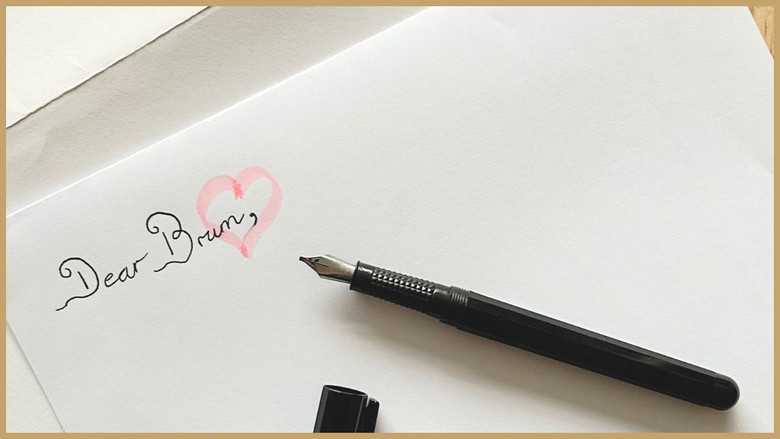 Dear Brun,